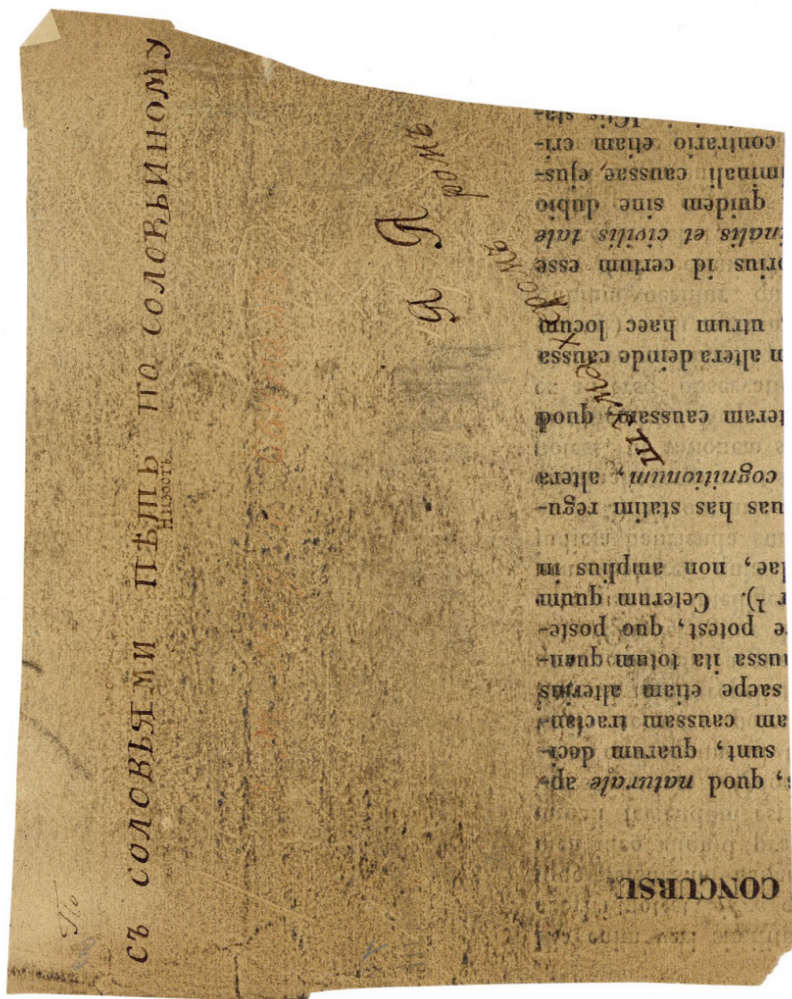 съ соловьями пѣть по соловьиному
Низость
По
я Я
ромъ
CONCURSU.
quod naturale ap-
sunt, quarum deci-
am caussam tractan-
saepe etiam alterius
ussa ita totum quan-
re potest, quo poste-
r ¹). Ceterum quum
lae, non amplius in
uas has statim regu-
cognitionum, altera
teram caussam, quod
n altera deinde caussa
utrum haec locum
orius id certum esse
nalis et civilis tale
quidem sine dubio
minali caussae, ejus-
contrario etiam cri-
ICtis sta-